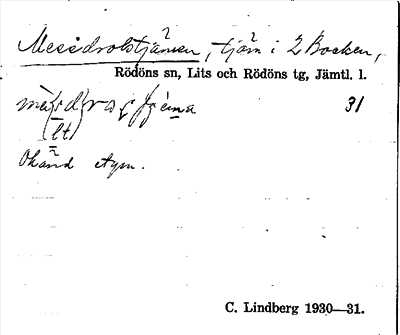 Messdrolstjärnen, tjärn i 2 Bocken,
Rödöns sn, Lits och Rödöns tg, Jämtl. l.
31
(lt)
Okänd etym.
C. Lindberg 1930—31.